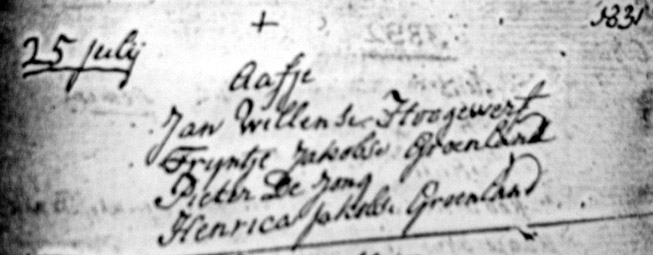 + 1831
25 julij
Aafje
Jan Willemse Hoogewerf
Tryntje Jakobse Groenland
Pieter De Jong
Henrica Jakobse Groenland